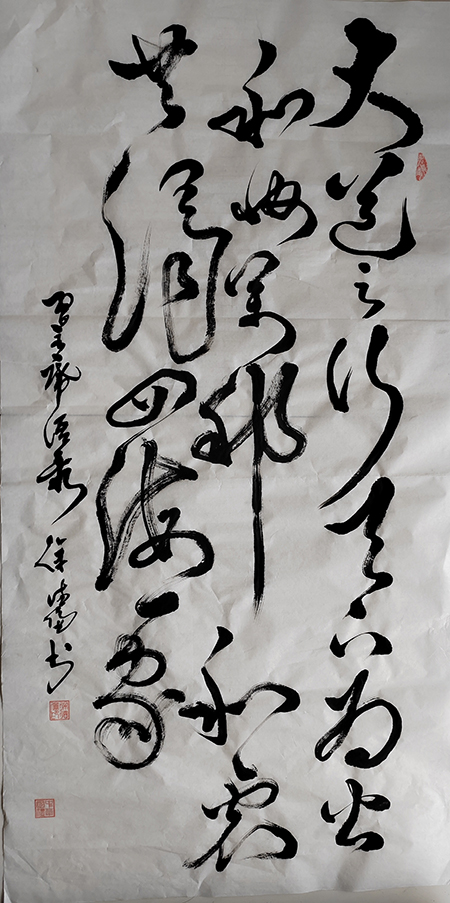 大道之行天下为公
和萬邦和衷
共濟四海一家
習主席语录 徐 书